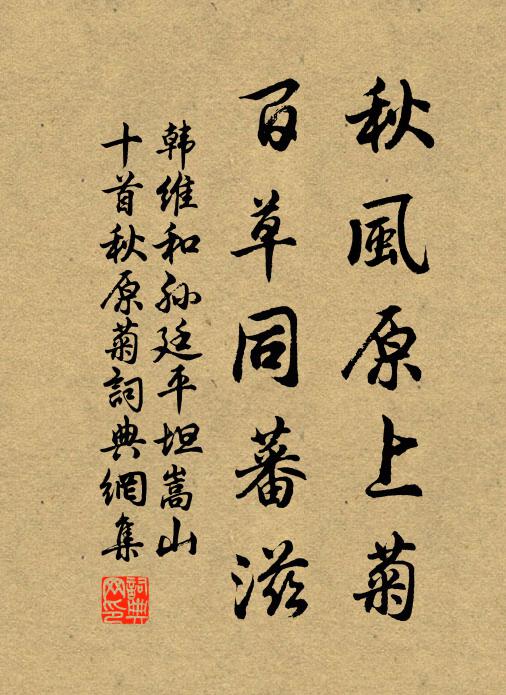 秋風原上菊
百草同蕃滋
韩維和孙廷平坦嵩山
十首秋原菊詞典網集
詞典网印